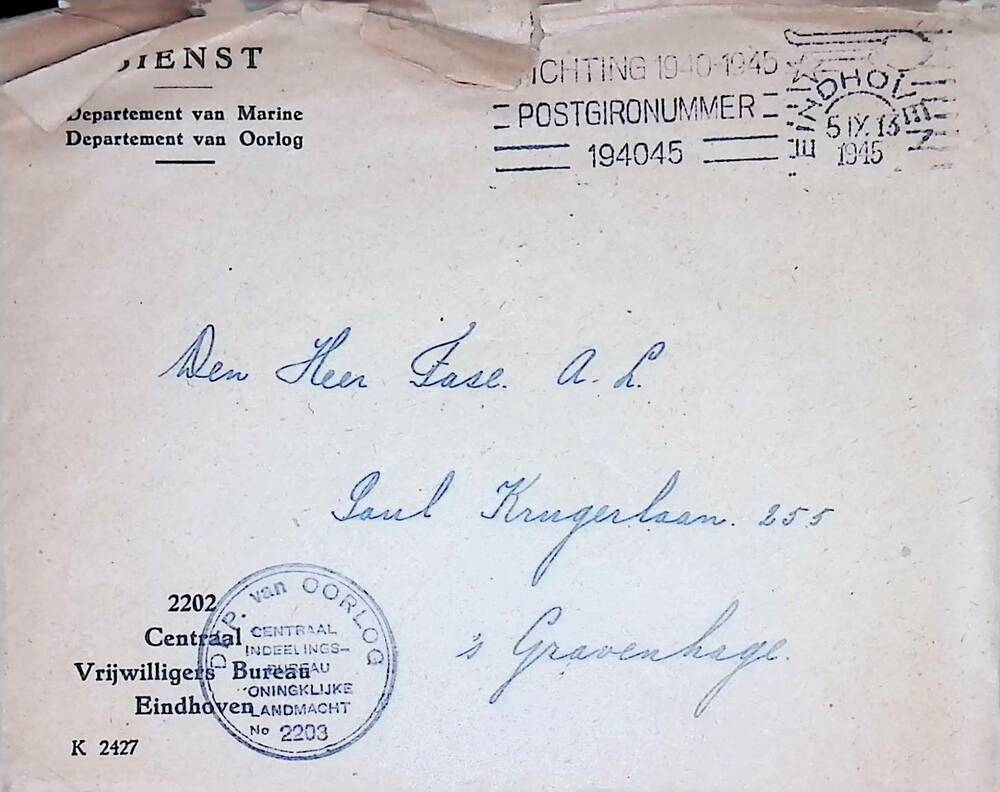 DIENST
Departement van Marine
Departement van Oorlog
ICHTING 1940-1945
POSTGIRONUMMER
194045
EINDHOVEN
5 IX. 13
1945
Den Heer Fase. A. L.
Paul Krugerlaan. 255
's Gravenhage.
2202
Centraal
Vrijwilligers Bureau
Eindhoven
K 2427
DEP. van OORLOG
CENTRAAL
INDEELINGS-
BUREAU
ONINGKLIJKE
LANDMACHT
No 2203